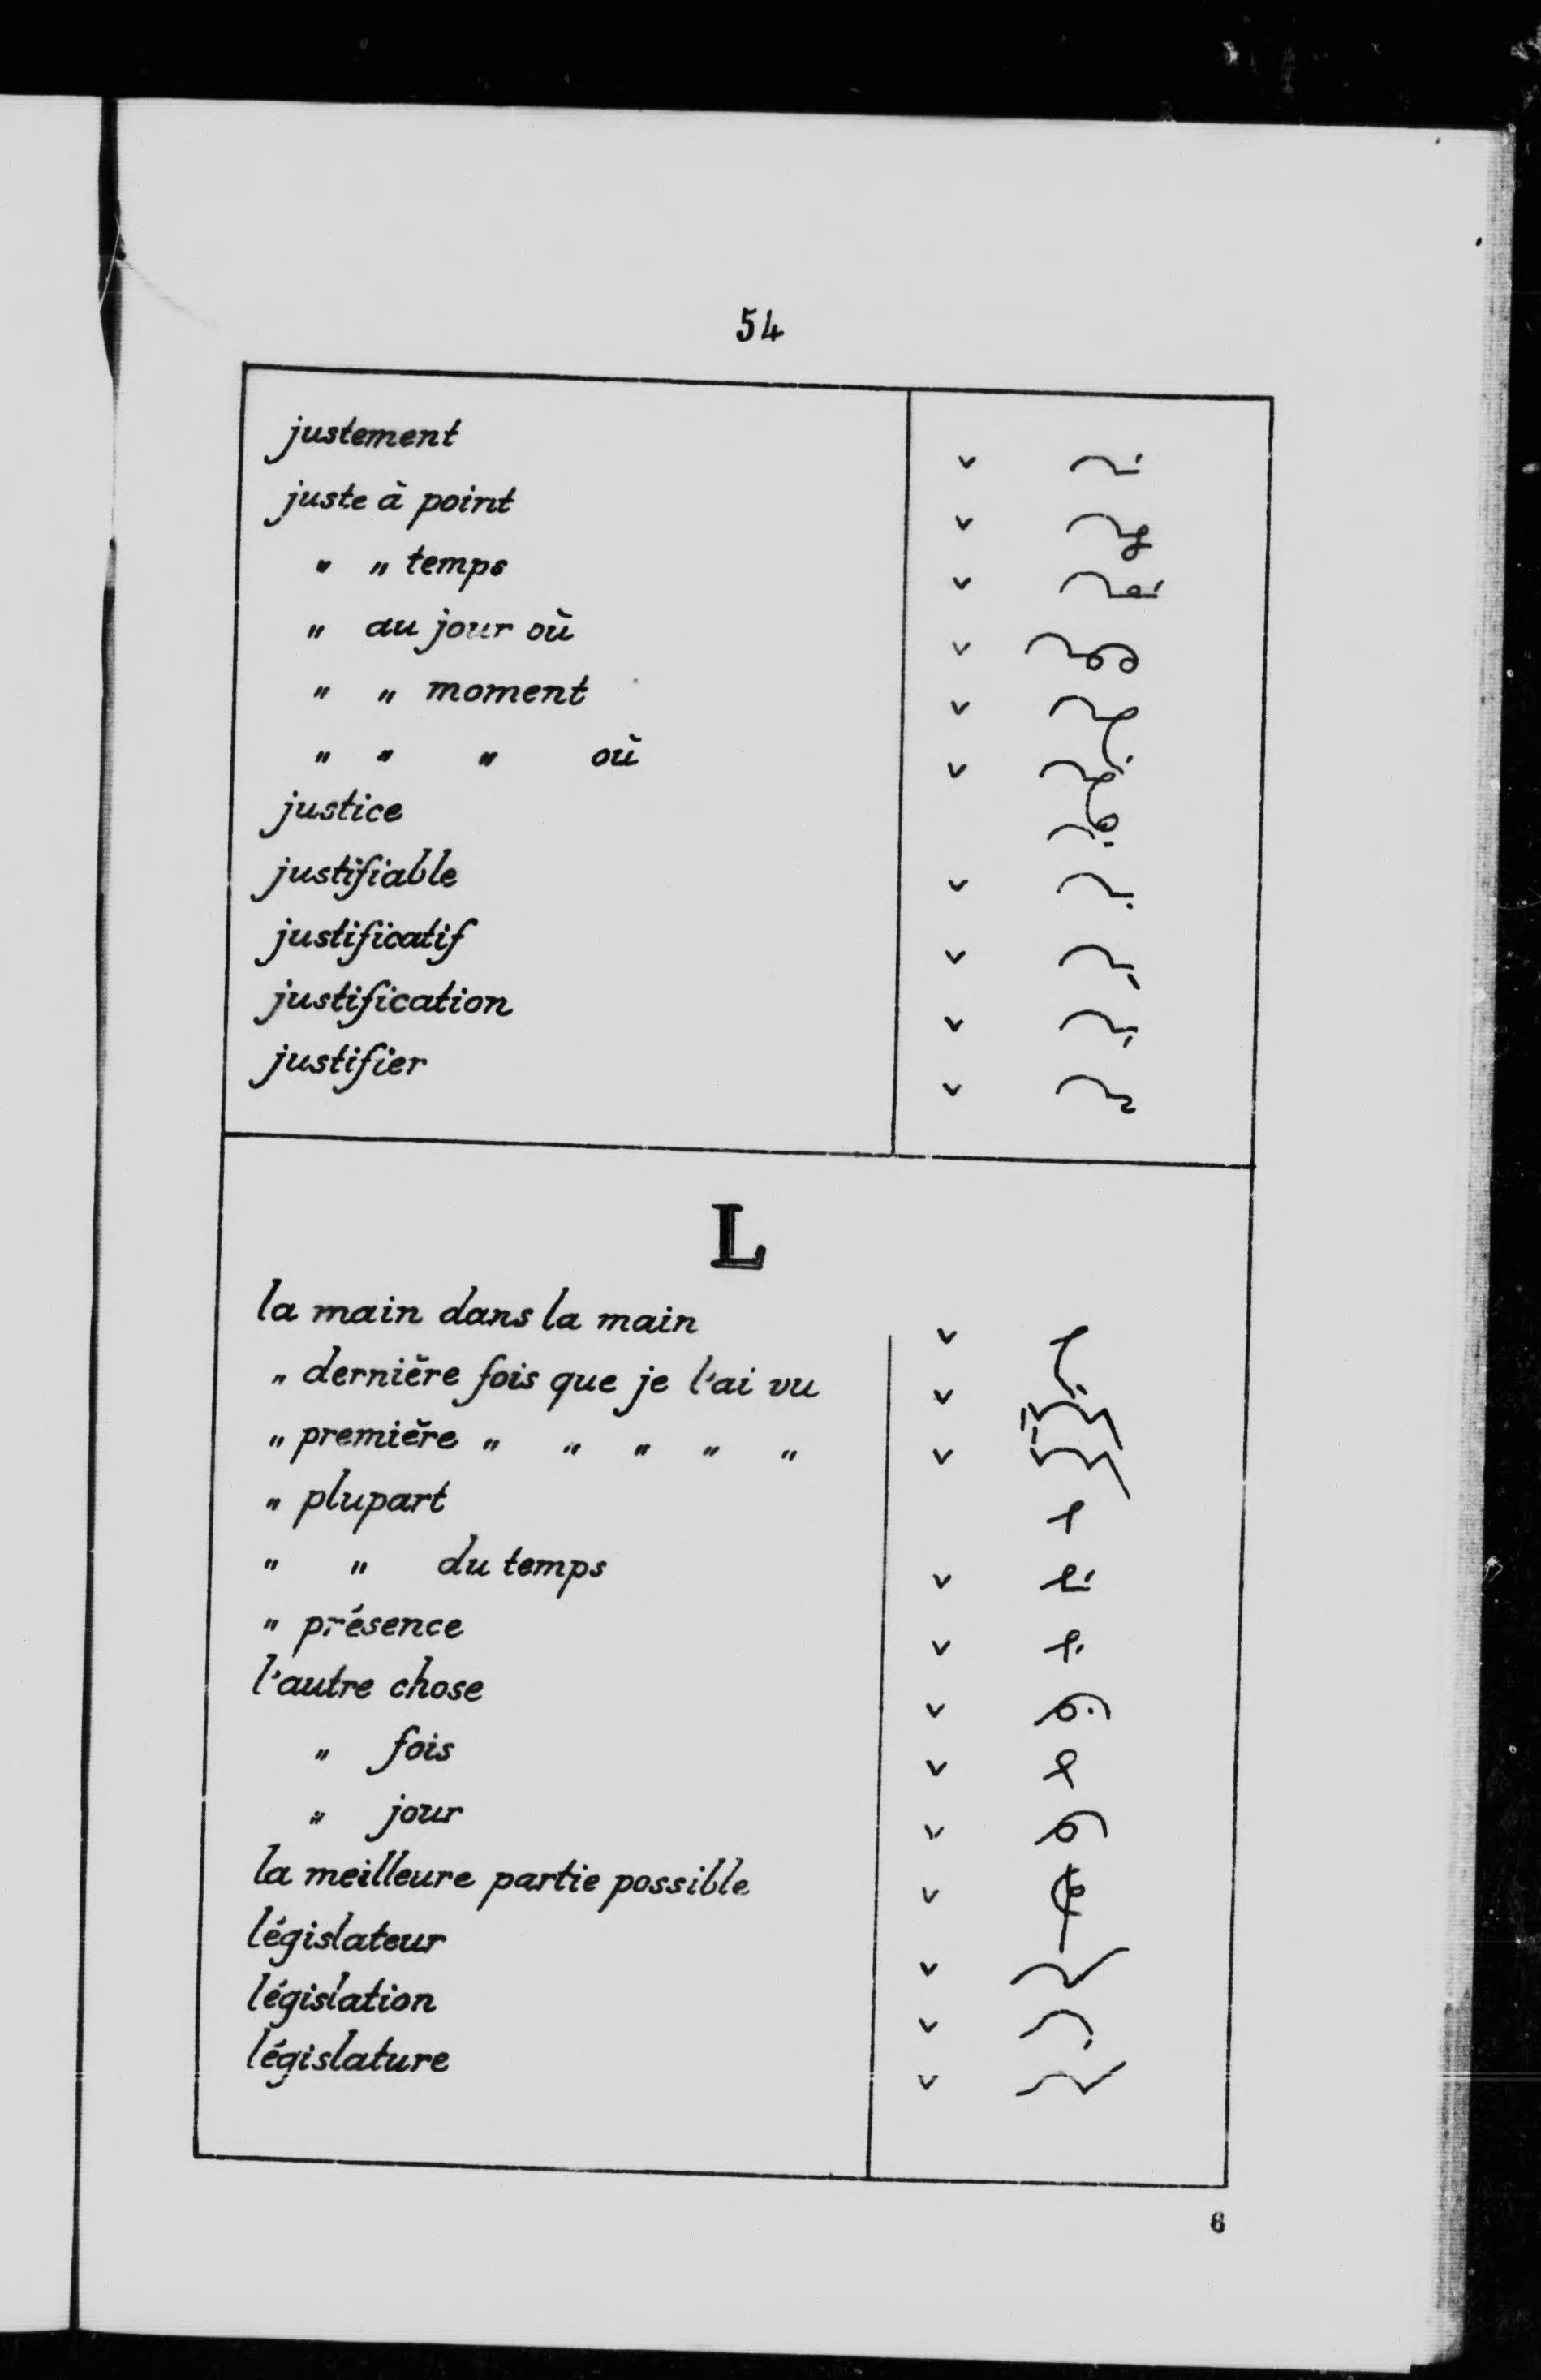 54
justement v
juste à point v
" " temps v
" au jour où v
" " moment v
" " " où v
justice
justifiable v
justificatif v
justification v
justifier v
L
la main dans la main v
" dernière fois que je l'ai vu v
" première " " " " " v
" plupart
" " du temps v
" présence v
l'autre chose v
" fois v
" jour v
la meilleure partie possible v
législateur v
législation v
législature v
6